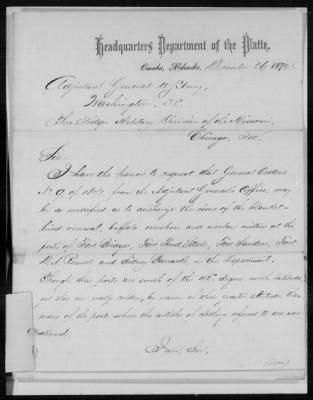 Headquarters Department of the Platte,
Omaha, Nebraska, December 26, 187
Adjutant General U.S. Army,
Washington, D.C.
Thro' Hdqrs Military Division of the Missouri,
Chicago, Ills.
Sir:
I have the honor to request that General Orders
No 9 of 1871, from the Adjutant General's Office, may
be so modified as to authorize the issue of the blanket-
lined overcoat, buffalo overshoes and woolen mittens at the
posts of Fort Bridger, Fort Fred Steele, Fort Sanders, Fort
D.A. Russell and Sidney Barracks in this Department.
Though these posts are south of the degree north latitude,
yet they are really colder, by reason of their great altitude, than
many of the posts where the articles of clothing referred to are now
allowed.
I am, Sir,